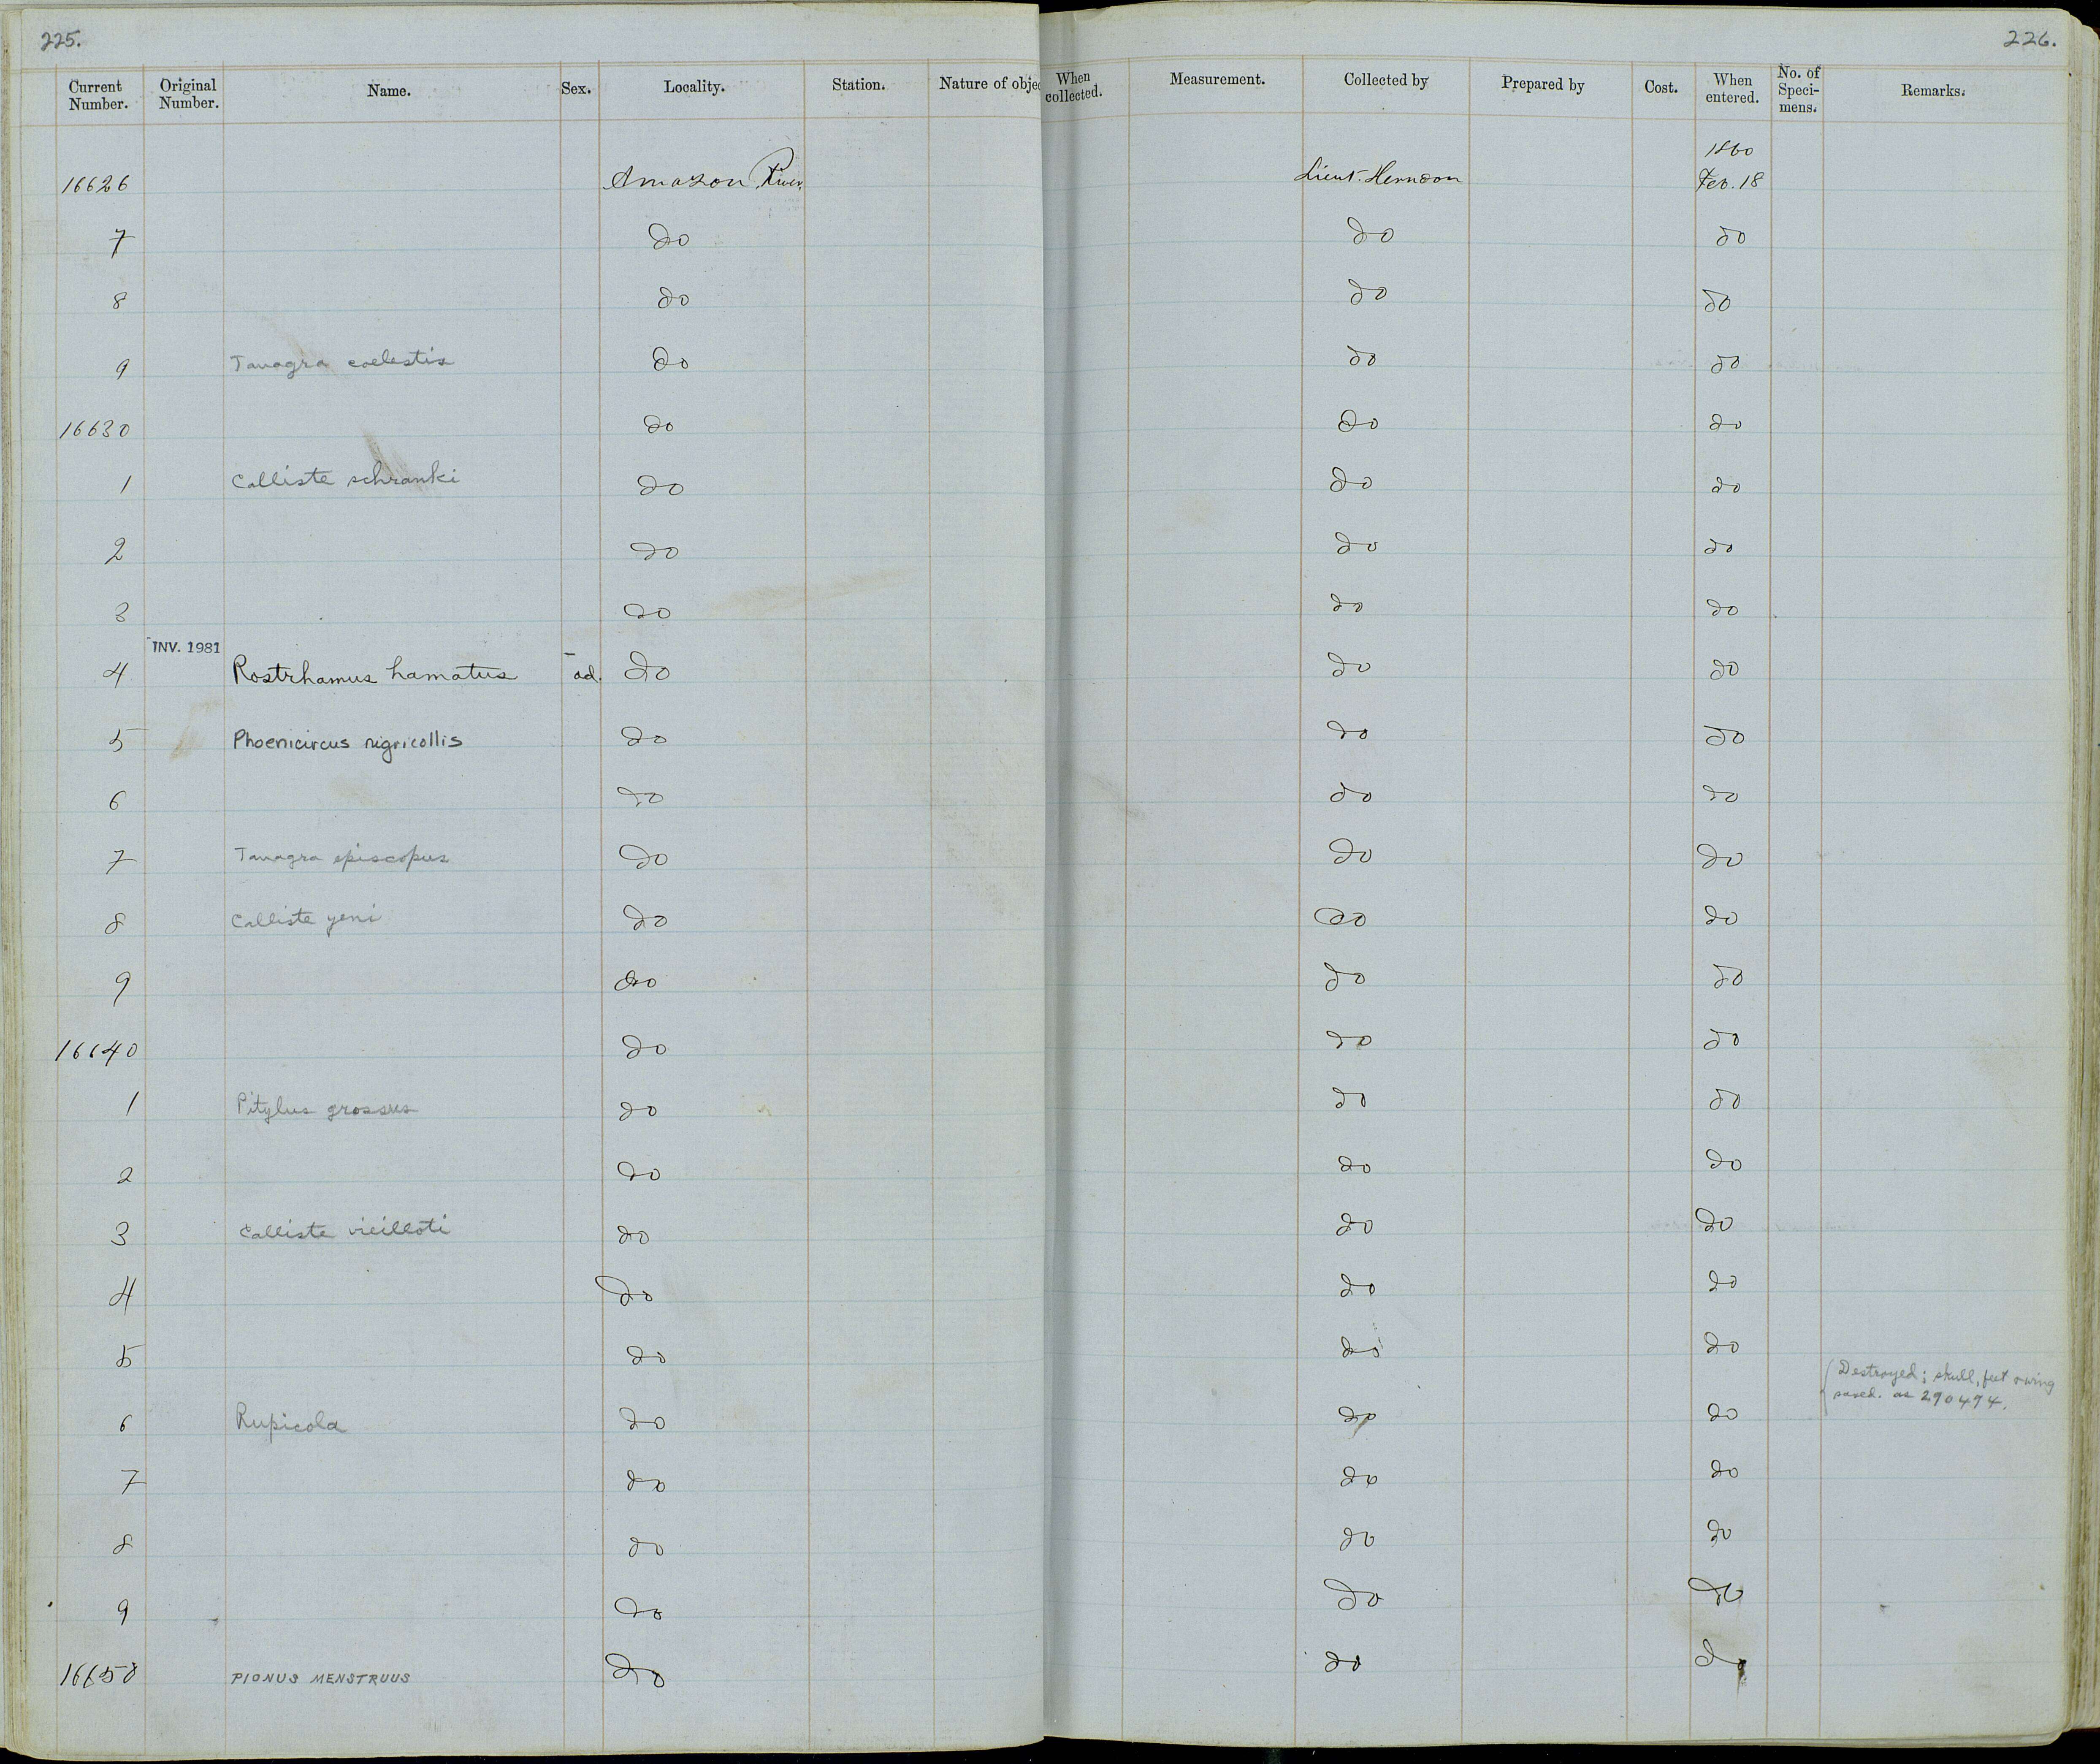 225.
226.
Current Number. Original Number. Name. Sex. Locality. Station. Nature of objec When collected. Measurement. Collected by Prepared by Cost. When entered. No. of Speci-mens. Remarks.
1860
16626 Amazon River Lieut. Herndon Feb. 18
7 do do do
8 do do do
9 Tanagra coelestis do do do
16630 do do do
1 Calliste schranki do do do
2 do do do
3 do do do
INV. 1981
4 Rostrhamus hamatus ad. do do do
5 Phoenicircus nigricollis do do do
6 do do do
7 Tanagra episcopus do do do
8 Calliste yeni do do do
9 do do do
16640 do do do
1 Pitylus grossus do do do
2 do do do
3 Calliste vieilloti do do do
4 do do do
5 do do do
Destroyed; skull, feet & wing
saved. as 290494.
6 Rupicola do do do
7 do do do
8 do do do
9 do do do
16650 PIONUS MENSTRUUS do do do